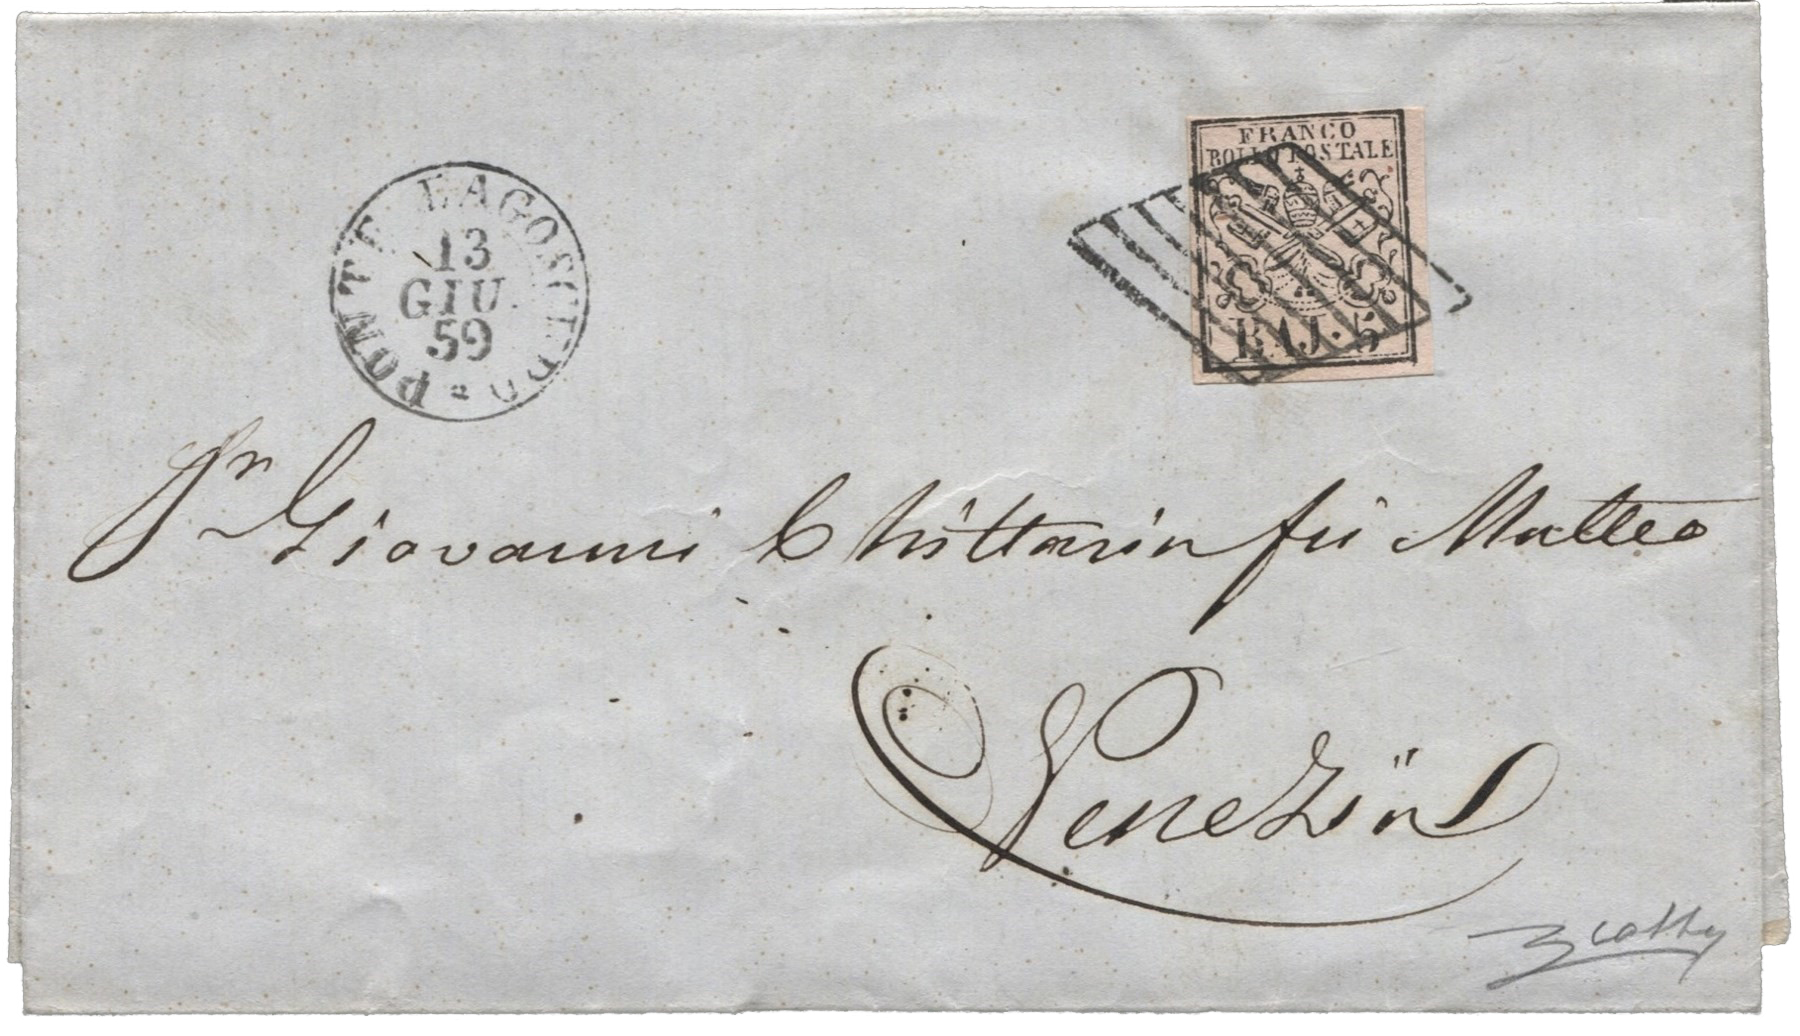 PONTE LAGOSCURO
13
GIU
59
FRANCO
BOLLO POSTALE
BAJ. 5
Sr Giovanni Chittarin fù Matteo
Venezia